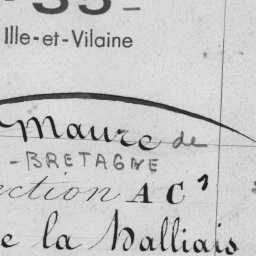 - 35 -
Ille-et-Vilaine
Maure de
-BRETAGNE
ection A C¹
e la Halliais